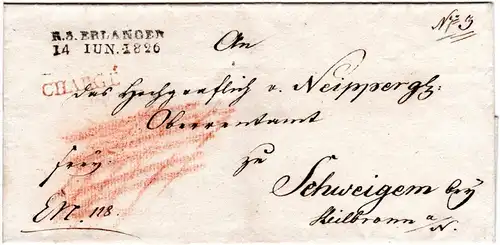 R.3. ERLANGEN
14 IUN. 1826
No 3
CHARGÉ
An
das Hochgräflich v. Neippergl:
Oberrentamt
frey.
zu
Schweigern bey
Heilbronn a/N.
EN 118.